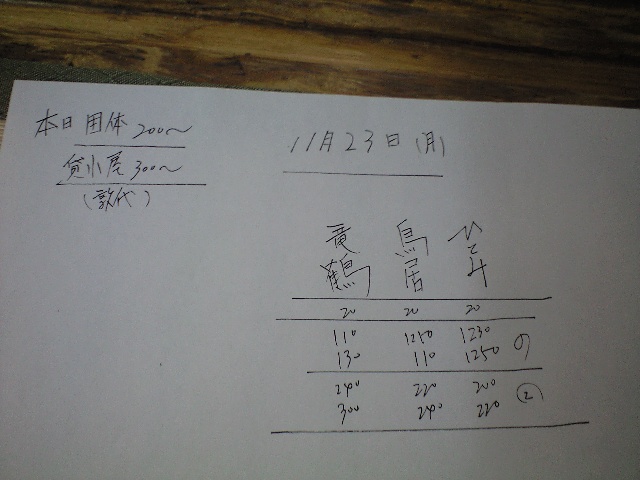 本日団体 200〜
貸小屋 300〜
(敦代)
11月23日(月)
竜鶴 鳥居 ひとみ
20 20 20
110 1250 1230 の
130 110 1250
240 220 200 ②
300 240 220